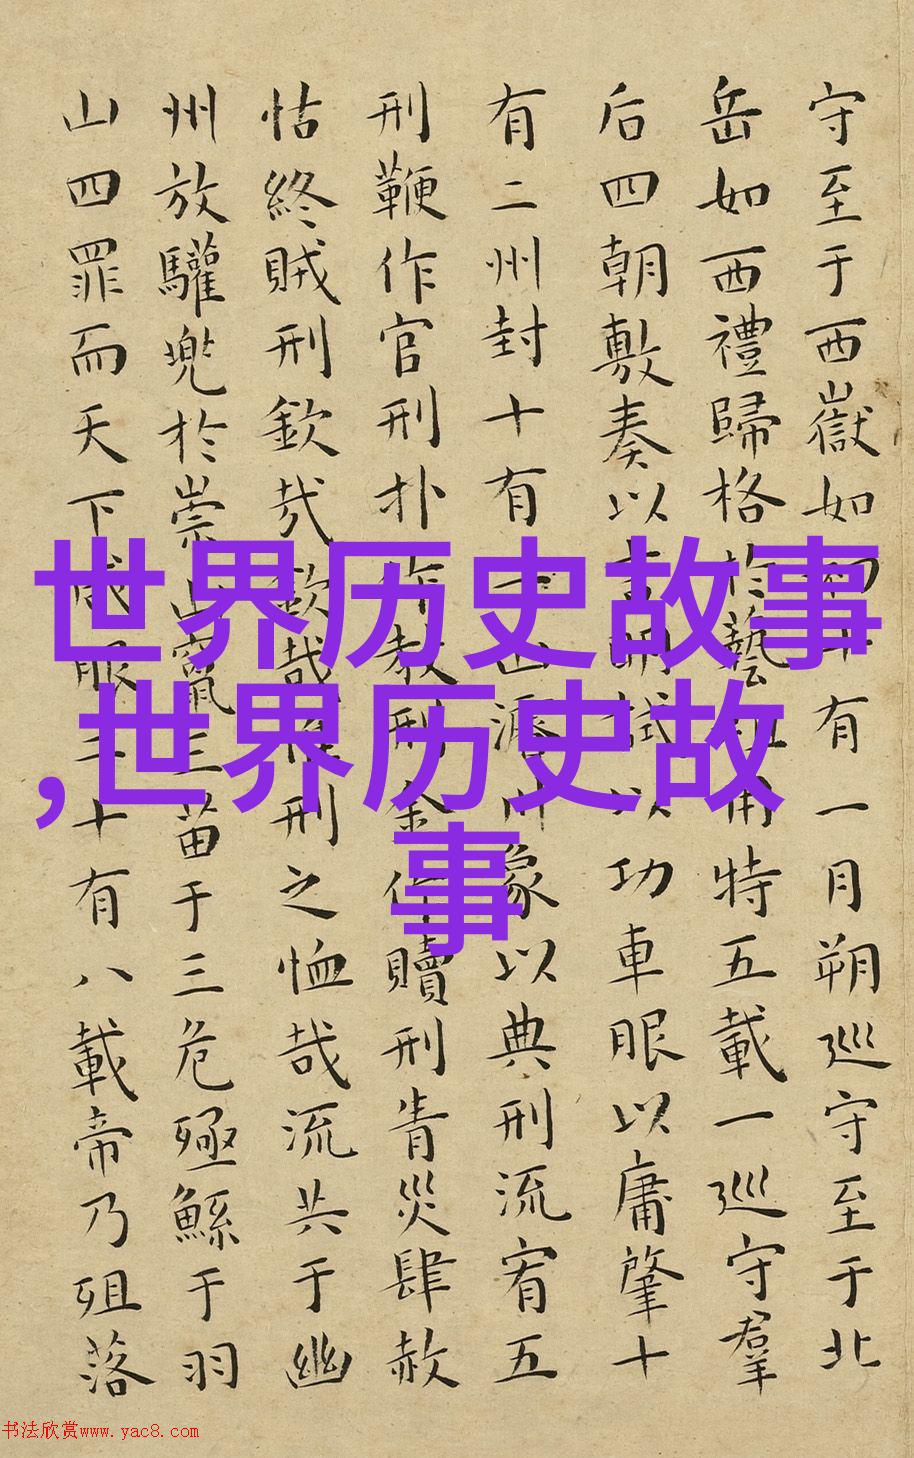 守至于西嶽如初十有一月朔巡守至于北
岳如西禮歸格於藝祖用特五載一巡守羣
后四朝敷奏以言明試以功車服以庸肇十
有二州封十有二山濬川象以典刑流宥五
刑鞭作官刑扑作教刑金作贖刑眚災肆赦
怙終賊刑欽哉欽哉惟刑之恤哉流共于幽
州放驩兜於崇山竄三苗于三危殛鯀于羽
山四罪而天下咸服二十有八載帝乃殂落
世界历史故事
,世界历史故
事
书法欣赏www.yac8.com